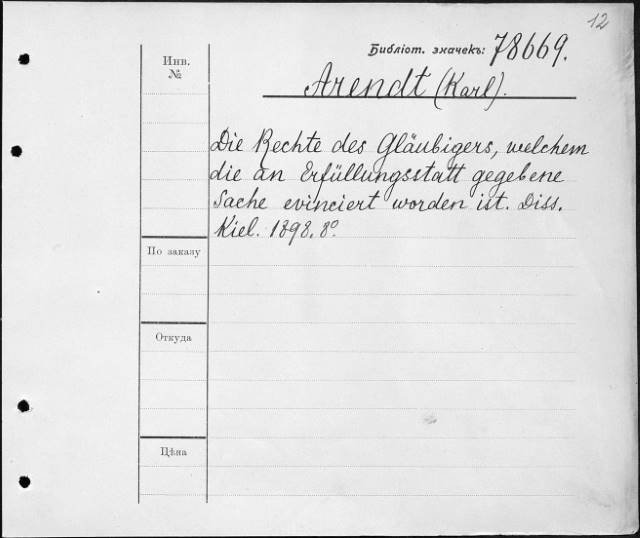 12
Библіот. значекъ: 78669.
Инв.
№
Arendt (Karl).
Die Rechte des Gläubigers, welchem
die an Erfüllungsstatt gegebene
Sache evinciert worden ist. Diss.
Kiel. 1898. 8°.
По заказу
Откуда
Цѣна